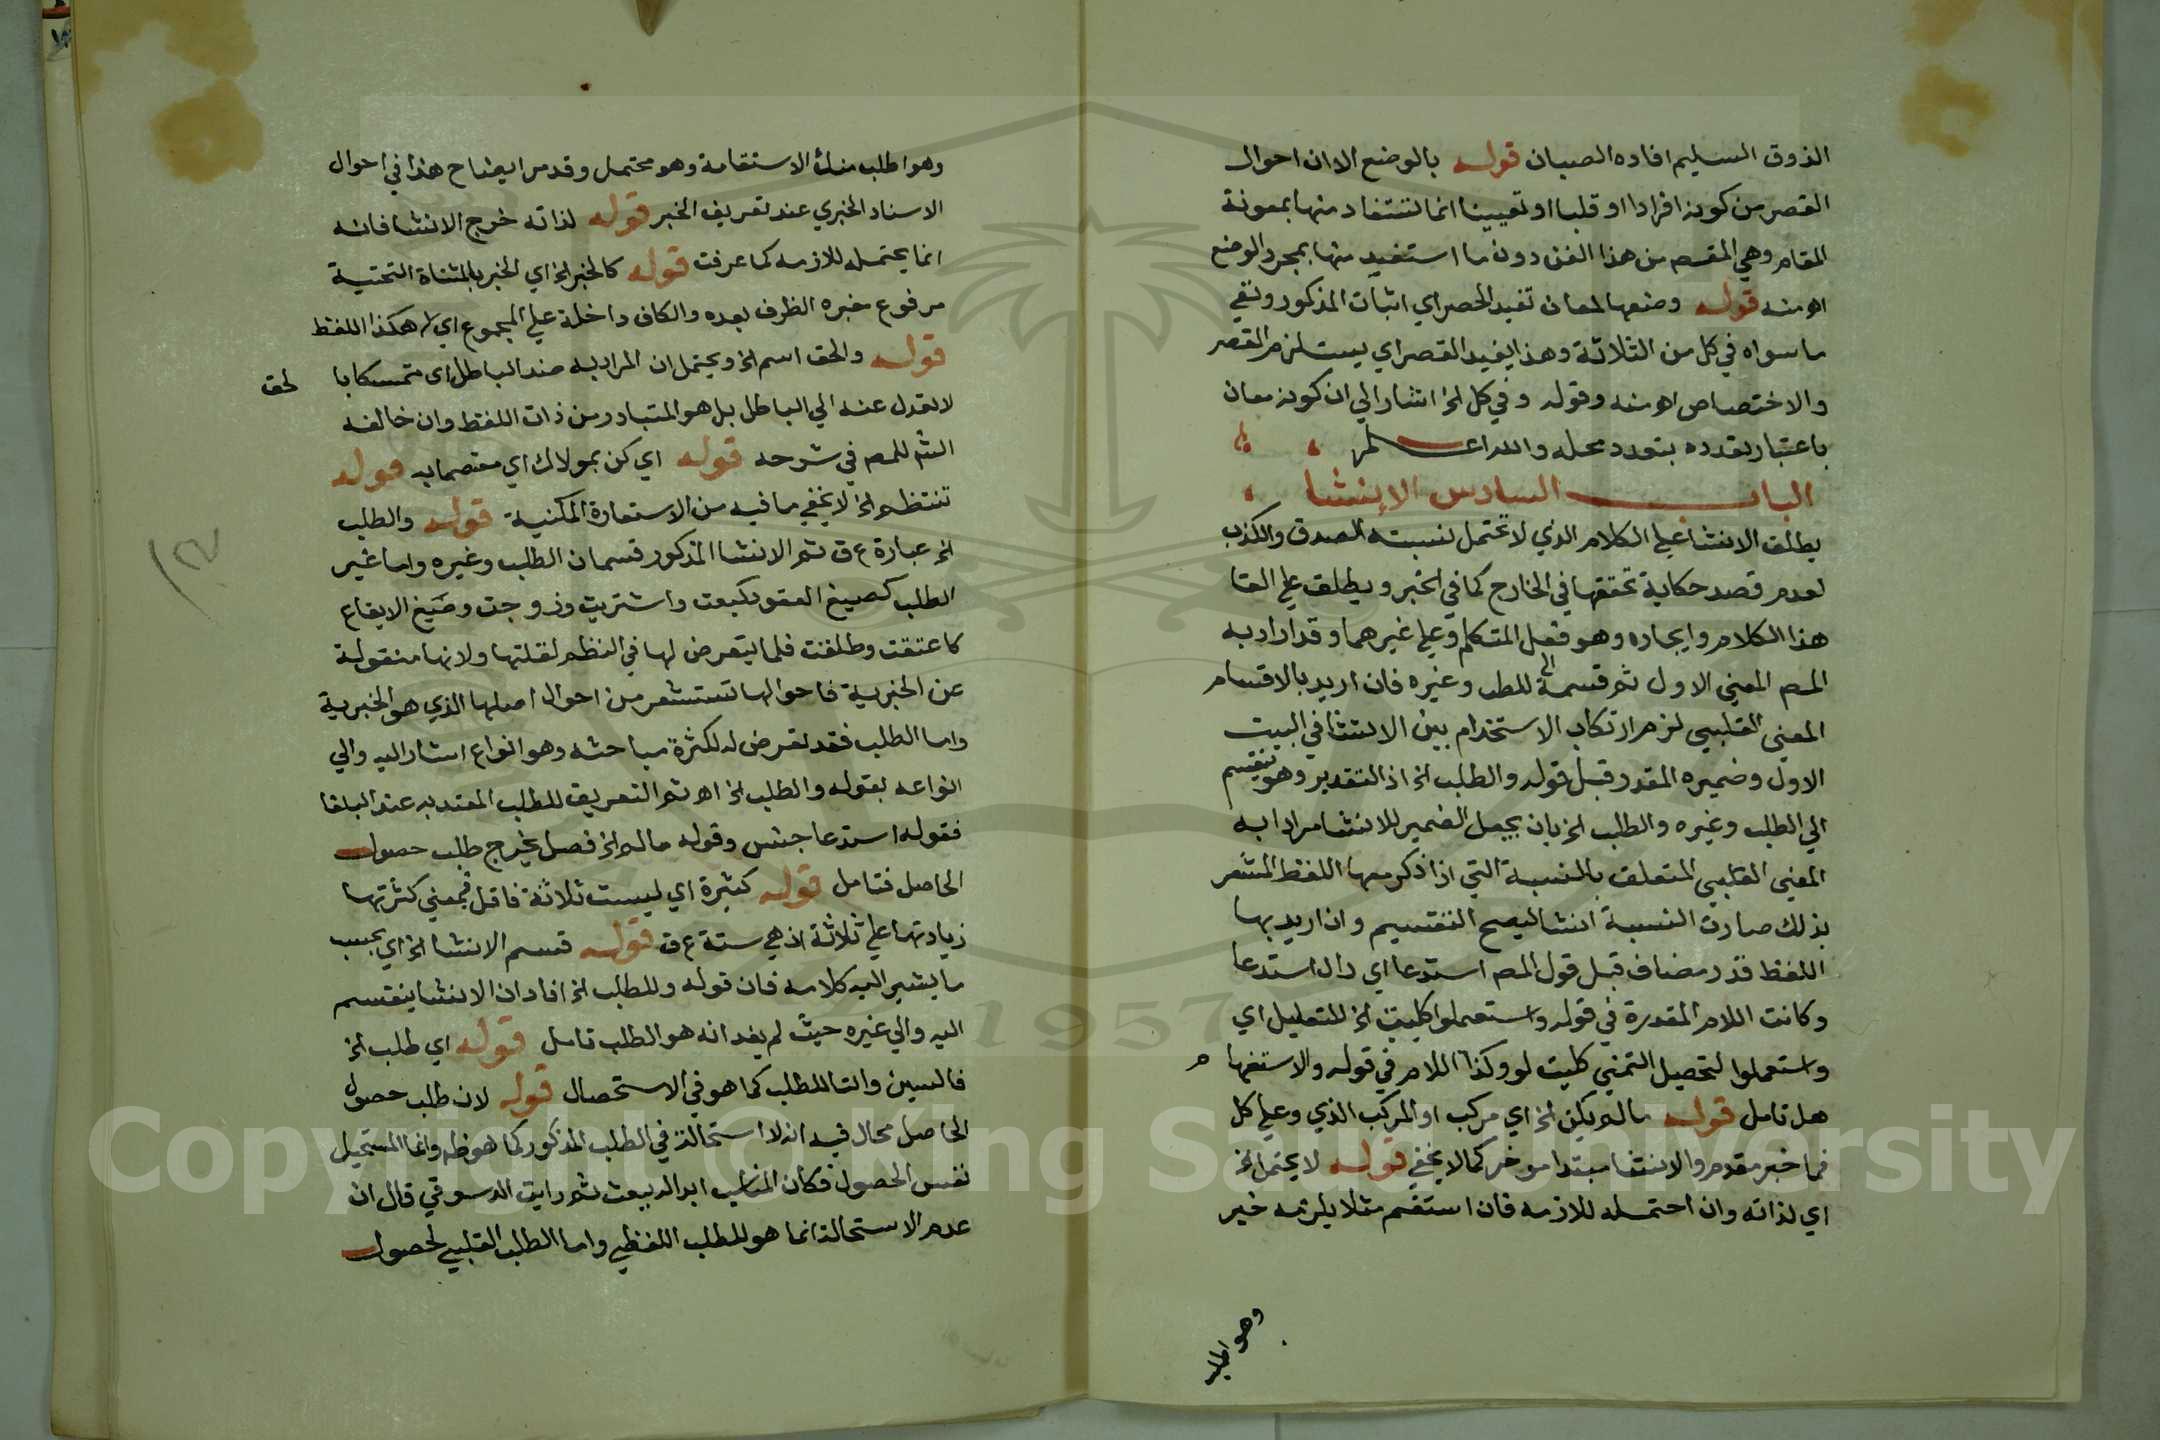 الذوق السليم افاده الصبان قوله بالوضع الا ان احوال
القصر من كونه افرادا او قلبا او تعيينا انما تستفاد منها بمعونة
المقام وهي المقصم من هذا الفن دون ما استفيد منها بمجرد الوضع
اه منه قوله وضعها لمعان تفيد الحصر اي اثبات المذكور ونفي
ما سواه في كل من الثلاثة وهذا يفيد القصر اي يستلزم القصر
والاختصاص اه منه وقوله وفي كل الخ اشار الي ان كونه معان
باعتبار تعدده بتعدد محله والله اعلم
الباب السادس الانشا
يطلق الانشا علي الكلام الذي لا تحتمل نسبته الصدق والكذب
لعدم قصد حكاية تحققها في الخارج كما في الخبر ويطلق علي القا
هذا الكلام وايجاده وهو فعل المتكلم وعلي غيرهما وقد اراد به
المصم المعني الاول ثم قسمه الي للطلب وغيره فان اريد بالاقسام
المعني القلبي لزم ارتكاب الاستخدام بين الانشا في البيت
الاول وضميره المقدر قبل قوله والطلب الخ اذ التقدير وهو ينقسم
الي الطلب وغيره والطلب الخ بان يجعل الضمير للانشا مرادا به
المعني القلبي المتعلق بالنسبة التي اذا ذكر معها اللفظ المشعر
بذلك صارت النسبة انشا ليصح التقسيم وان اريد بها
اللفظ قدر مضاف قبل قول المصم استدعا اي دال استدعا
وكانت اللام المقدرة في قوله واستعملوا كليت الخ للتعليل اي
واستعملوا لتحصيل التمني كليت لو وكذا اللام في قوله والاستفها م
هل تامل قوله ما لم يكن الخ اي مركب او المركب الذي وعلي كل
فما خبر مقدم والانشا مبتدا موخر كما لا يخفي قوله لا يحتمل الخ
اي لذاته وان احتمله للازمه فان استقم مثلا يلزمه خبر
وهو اطلب
وهو اطلب منك الاستقامة وهو محتمل وقد مر ايضاح هذا في احوال
الاسناد الخبري عند تعريف الخبر قوله لذاته خرج الانشا فانه
انما يحتمله للازمه كما عرفت قوله كالخبر الخ اي الخبر بالمثناة التحتية
مرفوع خبره الظرف بعده والكاف داخلة علي المجموع اي هكذا اللفظ
قوله والحق اسم الخ ويحتمل ان المراد به ضد الباطل اي متمسكا با لحق
لا تعدل عنه الي الباطل بل هو المتبادر من ذات اللفظ وان خالفه
الشم للمصم في شرحه قوله اي كن بمولاك اي معتصما به قوله
تنتظم الخ لا يخفي ما فيه من الاستعارة المكنية قوله والطلب
الخ عبارة ع ق ثم الانشا المذكور قسمان الطلب وغيره واما غير
الطلب كصيغ العقود كبعت واشتريت وزوجت وصيغ الايقاع
كاعتقت وطلقت فلم يتعرض لها في النظم لقلتها ولانها منقولة
عن الخبرية فاحوالها تستشعر من احوال اصلها الذي هو الخبرية
واما الطلب فقد تعرض له لكثرة مباحثه وهو انواع اشار اليه والي
انواعه بقوله والطلب الخ اه ثم التعريف للطلب المعتد به عند البلغا
فقوله استدعا جنس وقوله ما لم الخ فصل يخرج طلب حصول
الحاصل فتامل قوله كثيرة اي ليست ثلاثة فاقل فمعني كثرتها
زيادتها علي ثلاثة اذ هي ستة ع ق قوله قسم الانشا الخ اي بحسب
ما يشير اليه كلامه فان قوله وللطلب الخ افاد ان الانشا ينقسم
اليه والي غيره حيث لم يفد انه هو الطلب تامل قوله اي طلب الخ
فالسين والتا للطلب كما هو في الاستحصال قوله لان طلب حصول
الحاصل محال فيه انه لا استحالة في الطلب المذكور كما هو ظم وانما المستحيل
نفس الحصول فكان المناسب ابداله بعبث ثم رايت الدسوقي قال ان
عدم الاستحالة انما هو للطلب اللفظي واما الطلب القلبي لحصول
Copyright © King Saud University
1957